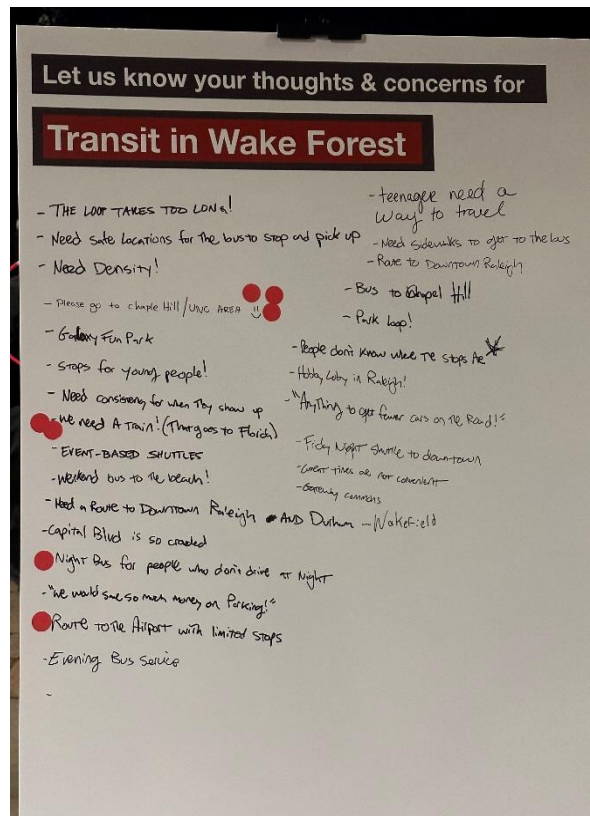 Let us know your thoughts & concerns for
Transit in Wake Forest
- THE LOOP TAKES TOO LONG!
- Need safe locations for the bus to stop and pick up
- Need Density!
- Please go to chaple Hill/UNC AREA
- Galaxy Fun Park
- Stops for young people!
- Need consistency for when they show up
- We need A Train! (That goes to Florida)
- EVENT-BASED SHUTTLES
- Weekend bus to the beach!
- Need a Route to Downtown Raleigh AND Durham - Wakefield
- Capital Blvd is so crowded
- Night Bus for people who don't drive at Night
- "We would save so much money on Parking!"
- Route to the Airport with limited stops
- Evening Bus Service
-
- teenager need a
way to travel
- Need sidewalks to get to the bus
- Route to Downtown Raleigh
- Bus to Chapel Hill
- Park Loop!
- People don't know where the stops Are
- Hobby Loby in Raleigh!
- "Anything to get fewer cars on the Road!"
- Friday Night shuttle to downtown
- Current times are not convenient
- Gateway commons